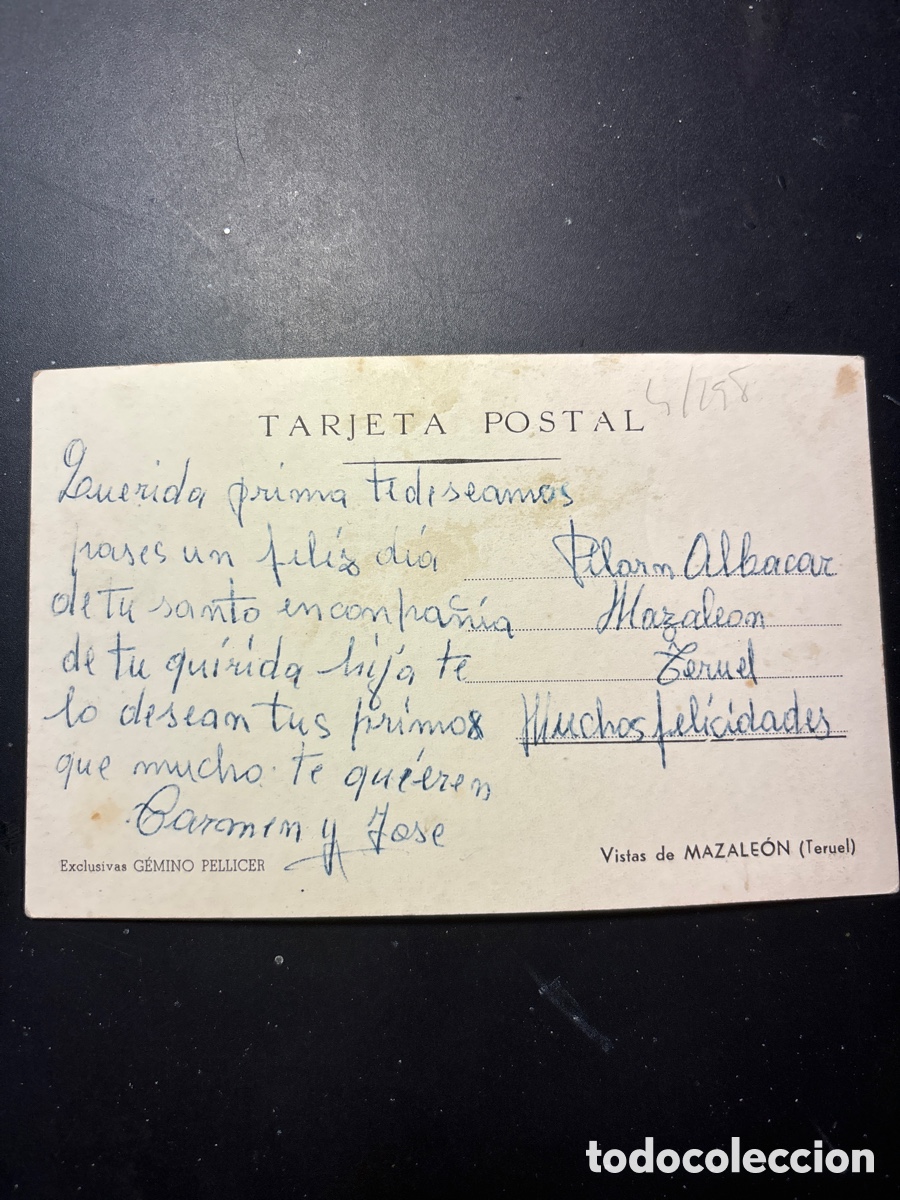 TARJETA POSTAL
4/298
Querida prima tedeseamos
pases un feliz día
de tu santo encompañía
de tu quirida hija te
lo desean tus primos
que mucho te quieren
Carmen y Jose
Pilarn Albacar
Mazaleon
Teruel
Muchos felicidades
Exclusivas GÉMINO PELLICER
Vistas de MAZALEÓN (Teruel)
todocoleccion